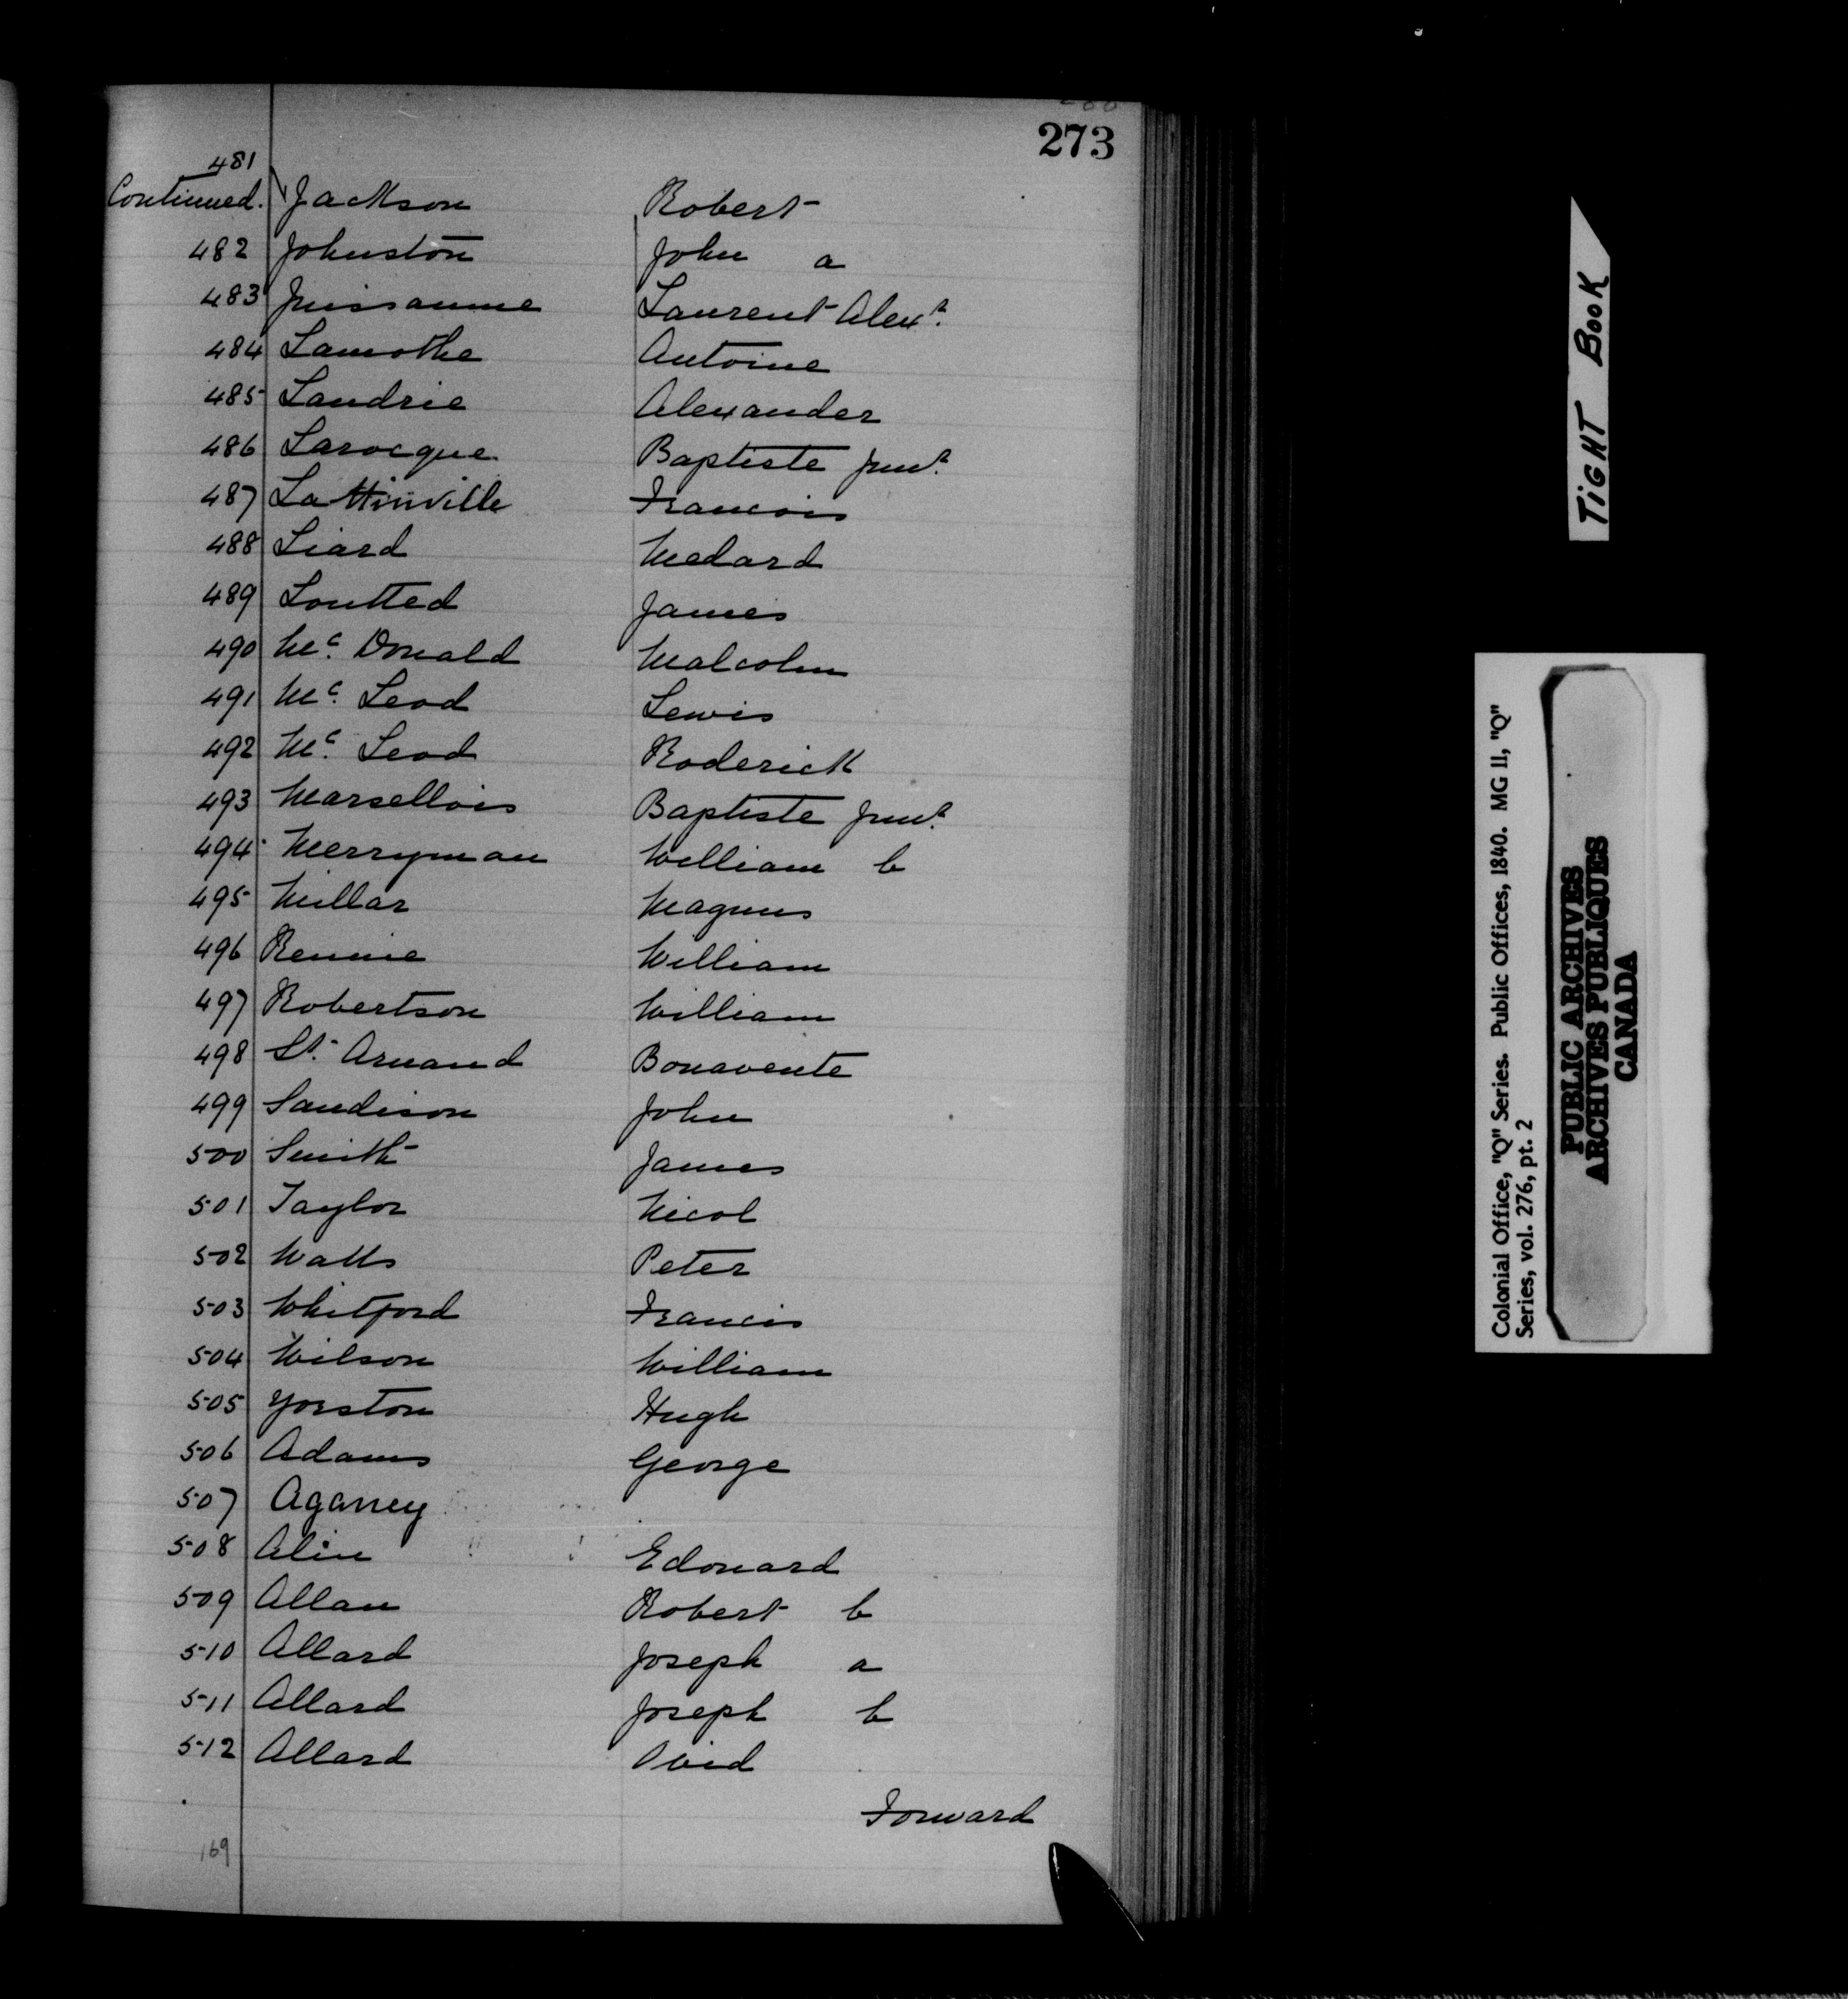 273
481
Continued. Jackson Robert
482 Johnston John a
483 Jussaume Laurent Alexr.
484 Lamothe Antoine
485 Landrie Alexander
486 Larocque Baptiste Junr.
487 Lattinville Francois
488 Liard Medard
489 Loutted James
490 Mc. Donald Malcolm
491 Mc. Leod Lewis
492 Mc. Leod Roderick
493 Marsellois Baptiste Junr.
494 Merryman William b
495 Millar Magnus
496 Rennie William
497 Robertson William
498 St. Arnaud Bonavente
499 Sandison John
500 Smith James
501 Taylor Nicol
502 Watts Peter
503 Whitford Francis
504 Wilson William
505 Yorston Hugh
506 Adams George
507 Aganey
508 Alin Edouard
509 Allan Robert b
510 Allard Joseph a
511 Allard Joseph b
512 Allard Ovid
Forward
169
TIGHT BOOK
Colonial Office, "Q" Series. Public Offices, 1840. MG II, "Q"
Series, vol. 276, pt. 2
PUBLIC ARCHIVES
ARCHIVES PUBLIQUES
CANADA